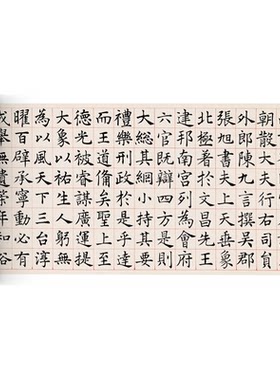 朝散大夫行右司員
外郎陳九言撰吳郡
張旭書夫上天垂象
北極著於文昌先王
建邦南宮列為會府
六官既辯四方是則
大總其綱小持其要
禮樂刑政於是乎達
而王道備矣聖上至
德光被睿謀廣運提
大象以祐生人躬無
為以風天下三台淳
曜百辟承寧動必有
成舉無遺策年和俗